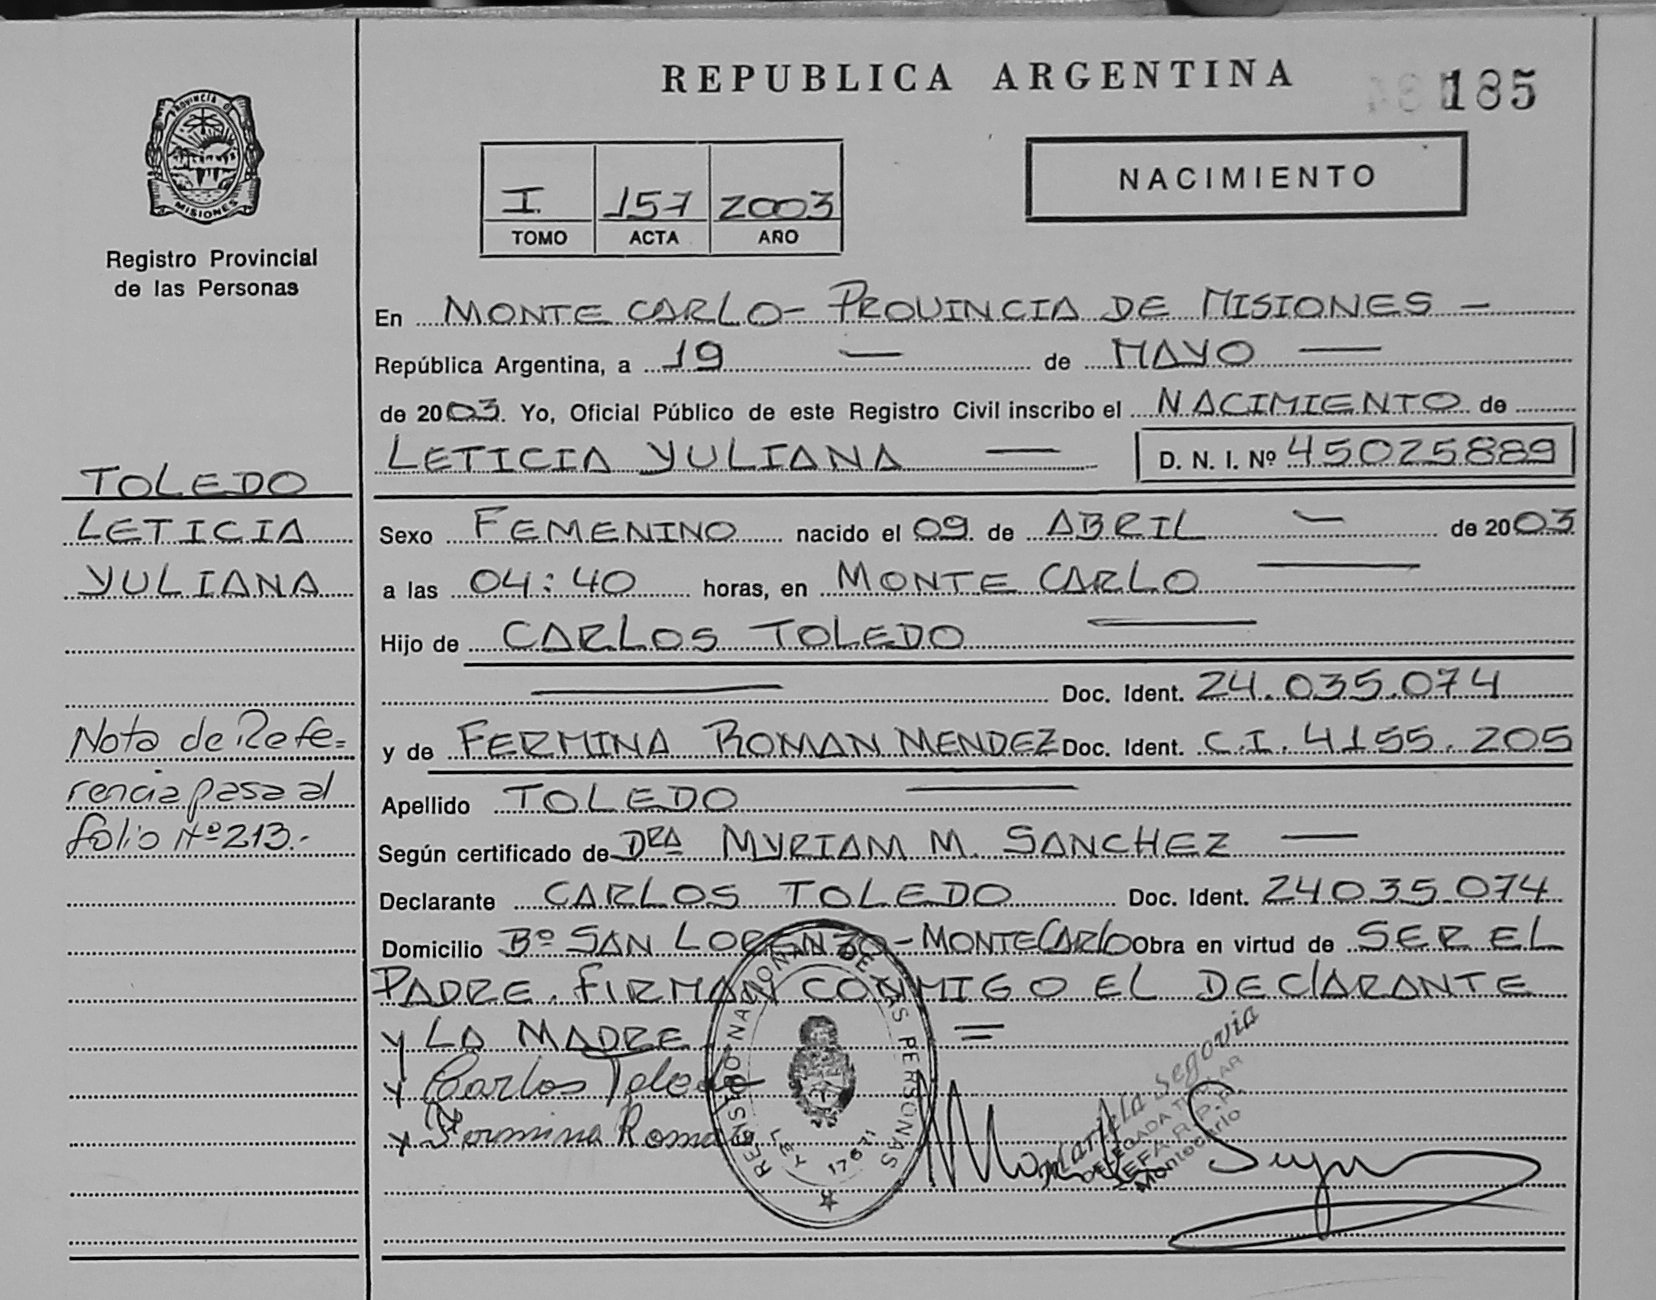 PROVINCIA DE
MISIONES
Registro Provincial
de las Personas
TOLEDO
LETICIA
YULIANA
Nota de Refe=
rencia pasa al
folio Nº 213.-
REPUBLICA ARGENTINA
185
I 157 2003
TOMO ACTA AÑO
NACIMIENTO
En MONTE CARLO - PROVINCIA DE MISIONES —
República Argentina, a 19 — de MAYO —
de 2003. Yo, Oficial Público de este Registro Civil inscribo el NACIMIENTO de
LETICIA YULIANA — D. N. I. Nº 45025889
Sexo FEMENINO nacido el 09 de ABRIL — de 2003
a las 04:40 horas, en MONTE CARLO —
Hijo de CARLOS TOLEDO —
— Doc. Ident. 24.035.074
y de FERMINA ROMAN MENDEZ Doc. Ident. C.I. 4155.205
Apellido TOLEDO —
Según certificado de DRA MYRIAM M. SANCHEZ —
Declarante CARLOS TOLEDO Doc. Ident. 24035.074
Domicilio Bº SAN LORENZO - MONTECARLO Obra en virtud de SER EL
PADRE. FIRMAN CONMIGO EL DECLARANTE
Y LA MADRE =
x Carlos Toledo
x Fermina Roman
REGISTRO NACIONAL DE LAS PERSONAS
LEY 17671
Mariela Segovia
DELEGADA TITULAR
JEFA R.P.P.
Montecarlo